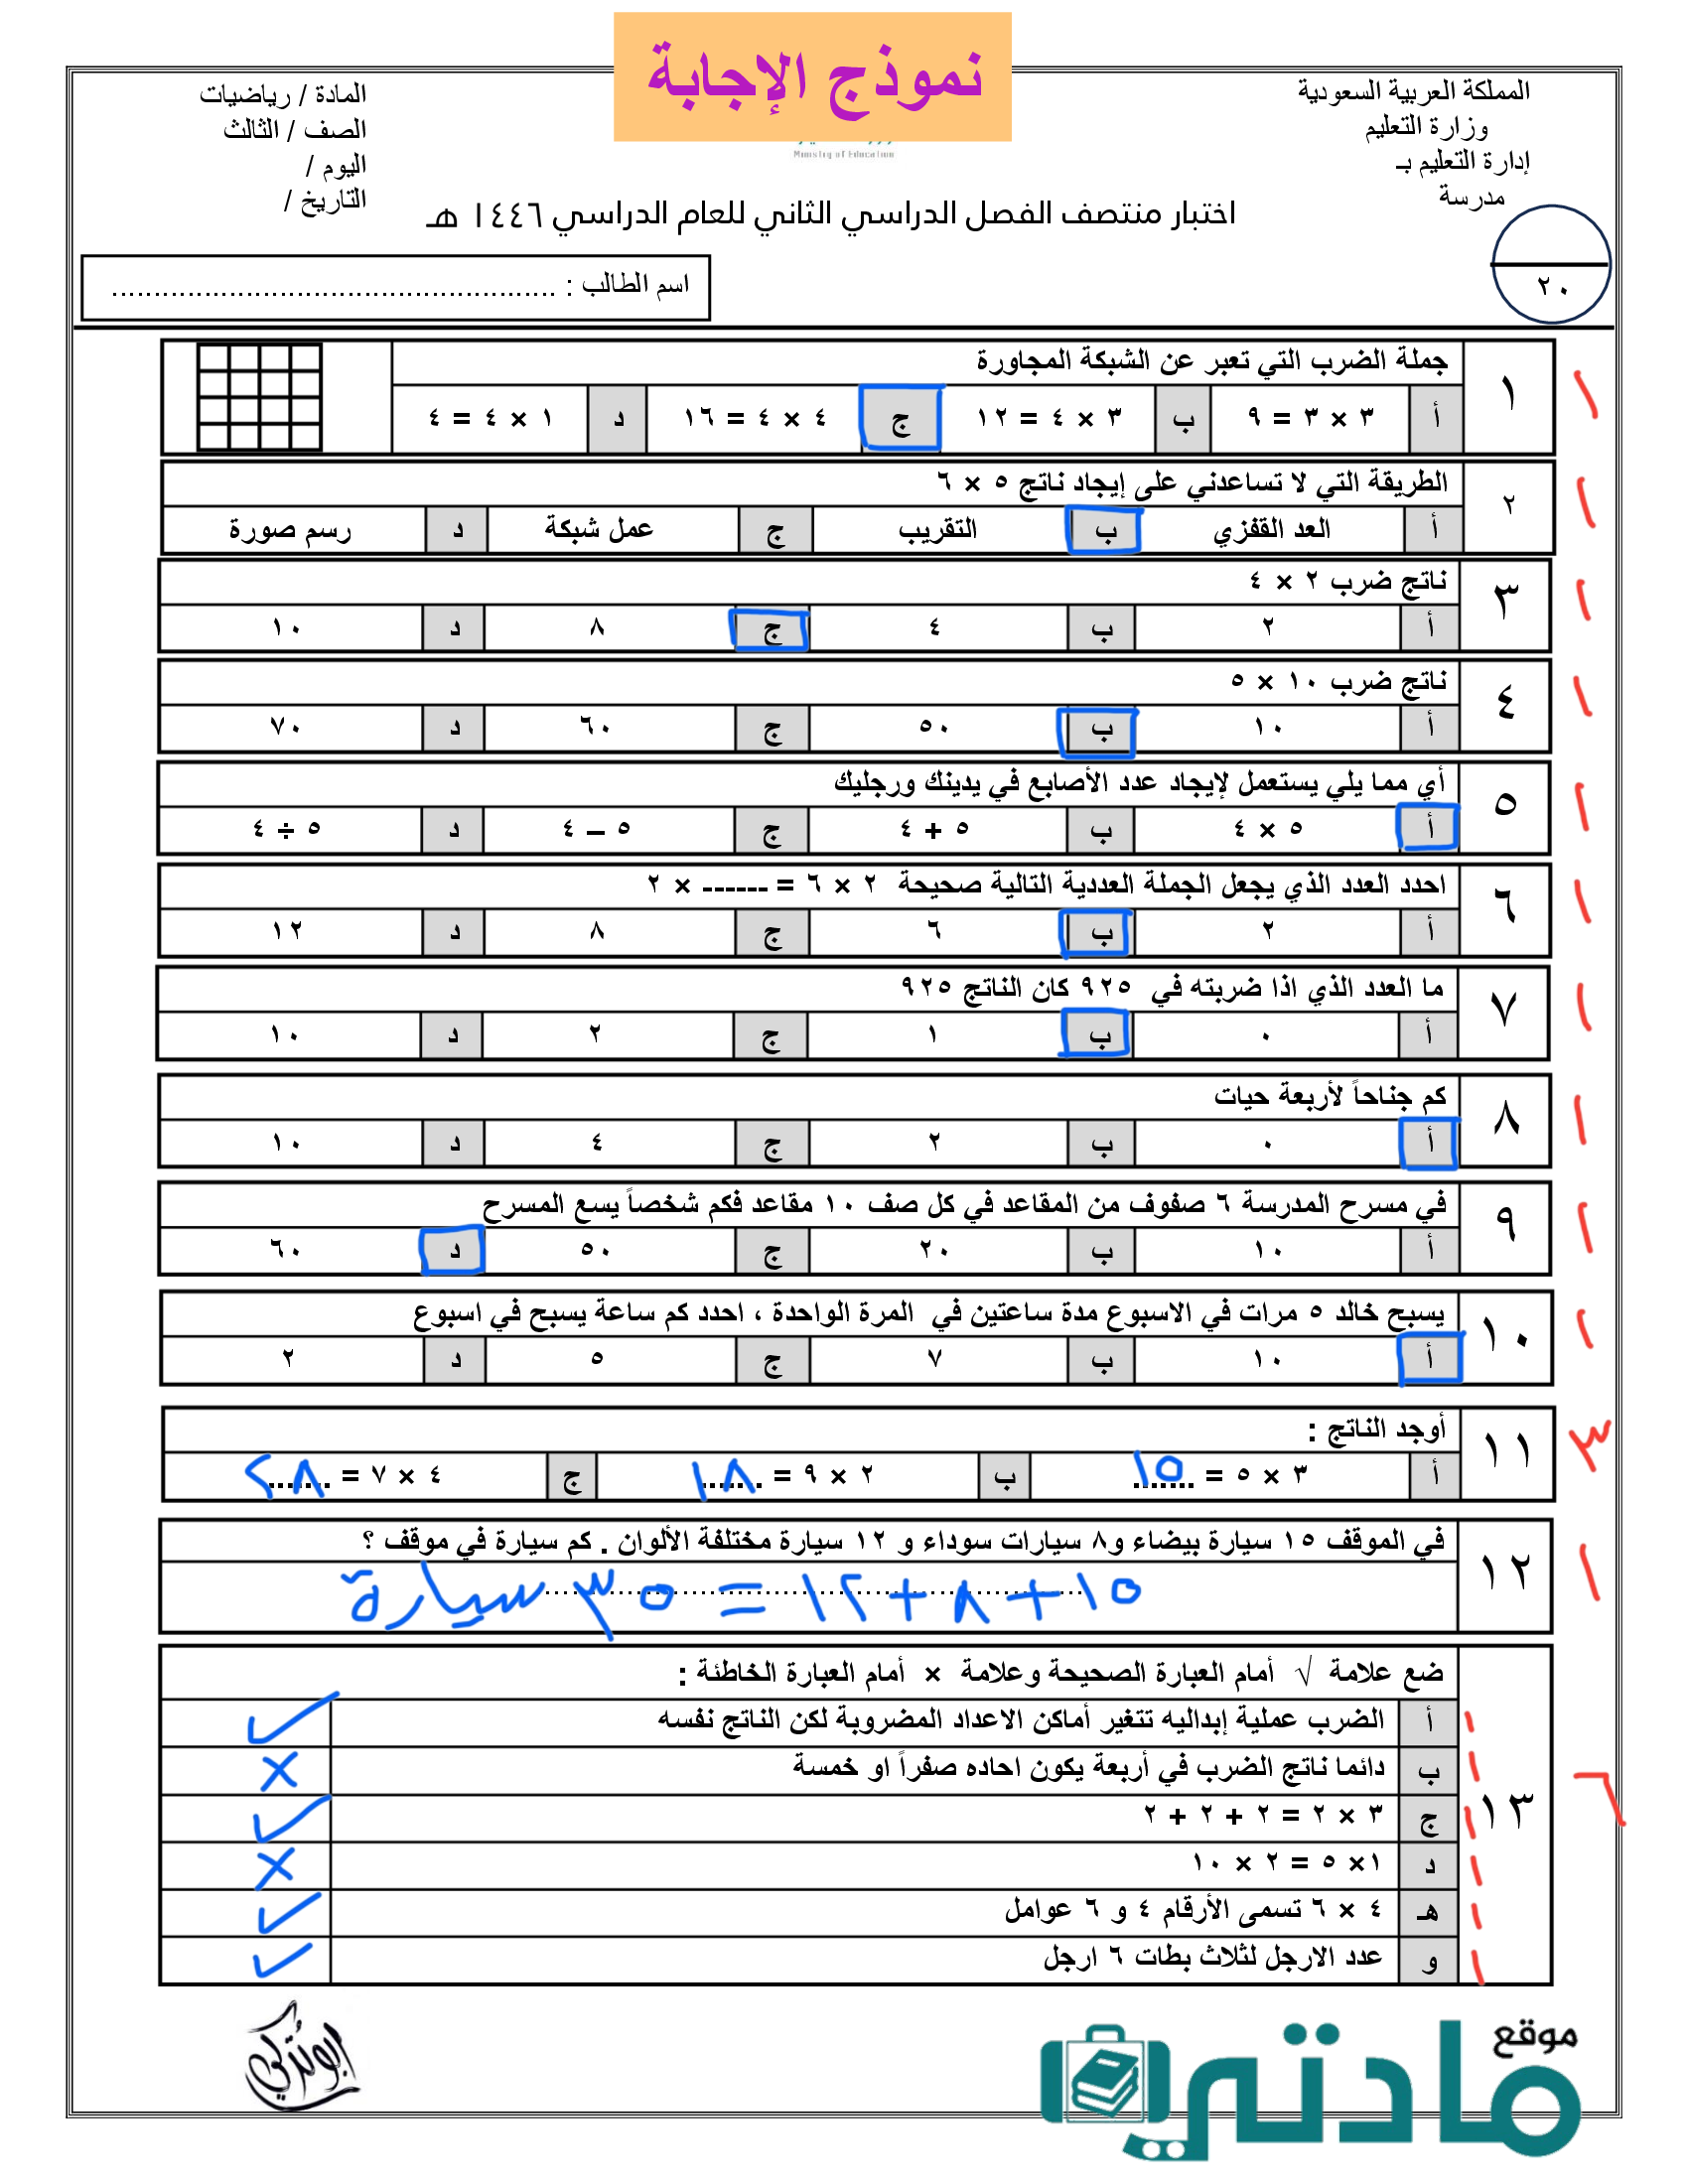 نموذج الإجابة
المملكة العربية السعودية
وزارة التعليم
إدارة التعليم بـ
مدرسة
Ministry of Education
المادة / رياضيات
الصف / الثالث
اليوم /
التاريخ /
اختبار منتصف الفصل الدراسي الثاني للعام الدراسي ١٤٤٦ هـ
٢٠
اسم الطالب : ......................................................
١ جملة الضرب التي تعبر عن الشبكة المجاورة ١
أ ٣ × ٣ = ٩ ب ٣ × ٤ = ١٢ ج ٤ × ٤ = ١٦ د ١ × ٤ = ٤
١ ٢ الطريقة التي لا تساعدني على إيجاد ناتج ٥ × ٦
أ العد القفزي ب التقريب ج عمل شبكة د رسم صورة
١ ٣ ناتج ضرب ٢ × ٤
أ ٢ ب ٤ ج ٨ د ١٠
١ ٤ ناتج ضرب ١٠ × ٥
أ ١٠ ب ٥٠ ج ٦٠ د ٧٠
١ ٥ أي مما يلي يستعمل لإيجاد عدد الأصابع في يدينك ورجليك
أ ٥ × ٤ ب ٥ + ٤ ج ٥ – ٤ د ٥ ÷ ٤
١ ٦ احدد العدد الذي يجعل الجملة العددية التالية صحيحة ٢ × ٦ = ------ × ٢
أ ٢ ب ٦ ج ٨ د ١٢
١ ٧ ما العدد الذي اذا ضربته في ٩٢٥ كان الناتج ٩٢٥
أ ٠ ب ١ ج ٢ د ١٠
١ ٨ كم جناحاً لأربعة حيات
أ ٠ ب ٢ ج ٤ د ١٠
١ ٩ في مسرح المدرسة ٦ صفوف من المقاعد في كل صف ١٠ مقاعد فكم شخصاً يسع المسرح
أ ١٠ ب ٢٠ ج ٥٠ د ٦٠
١ ١٠ يسبح خالد ٥ مرات في الاسبوع مدة ساعتين في المرة الواحدة ، احدد كم ساعة يسبح في اسبوع
أ ١٠ ب ٧ ج ٥ د ٢
٣ ١١ أوجد الناتج :
أ ٣ × ٥ = ١٥ ب ٢ × ٩ = ١٨ ج ٤ × ٧ = ٢٨
١ ١٢ في الموقف ١٥ سيارة بيضاء و٨ سيارات سوداء و ١٢ سيارة مختلفة الألوان . كم سيارة في موقف ؟
١٥ + ٨ + ١٢ = ٣٥ سيارة
٦ ١٣ ضع علامة √ أمام العبارة الصحيحة وعلامة × أمام العبارة الخاطئة :
١ أ الضرب عملية إبداليه تتغير أماكن الاعداد المضروبة لكن الناتج نفسه ✓
١ ب دائما ناتج الضرب في أربعة يكون احاده صفراً او خمسة ×
١ ج ٣ × ٢ = ٢ + ٢ + ٢ ✓
١ د ١× ٥ = ٢ × ١٠ ×
١ هـ ٤ × ٦ تسمى الأرقام ٤ و ٦ عوامل ✓
١ و عدد الارجل لثلاث بطات ٦ ارجل ✓
ابوتركي
موقع
مادتي